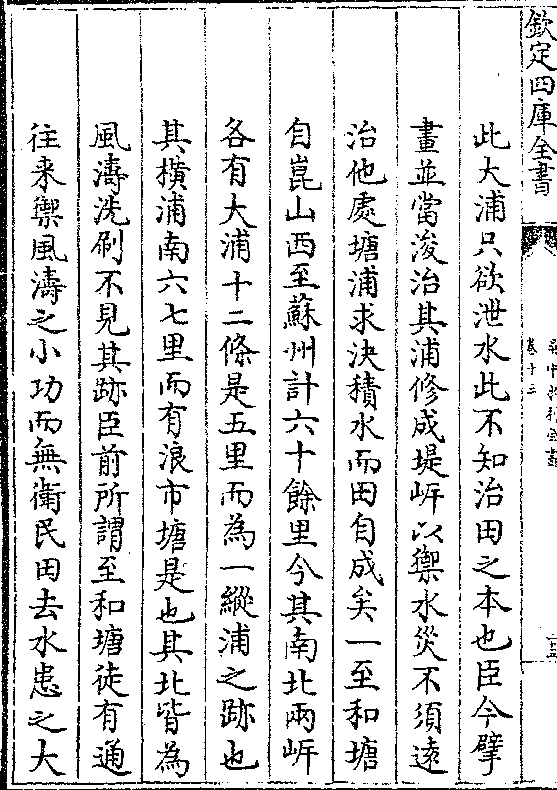 欽定四庫全書
卷十三
此大浦只欲泄水此不知治田之本也臣今擘
畫並當浚治其浦修成堤岍以禦水災不須逺
治他處塘浦求決積水而田自成矣一至和塘
自崑山西至蘇州計六十餘里今其南北兩岍
各有大浦十二條是五里而為一縱浦之跡也
其橫浦南六七里而有浪市塘是也其北皆為
風濤洗刷不見其跡臣前所謂至和塘徒有通
往来禦風濤之小功而無衛民田去水患之大